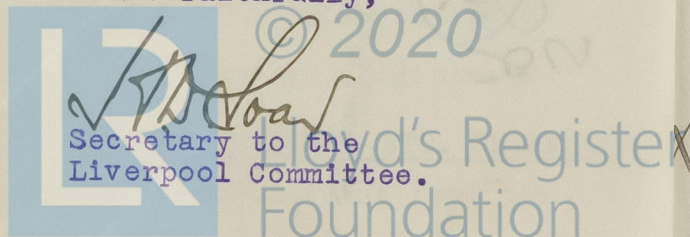 © 2020
Secretary to the
Liverpool Committee.
LR
Lloyd's Register
Foundation